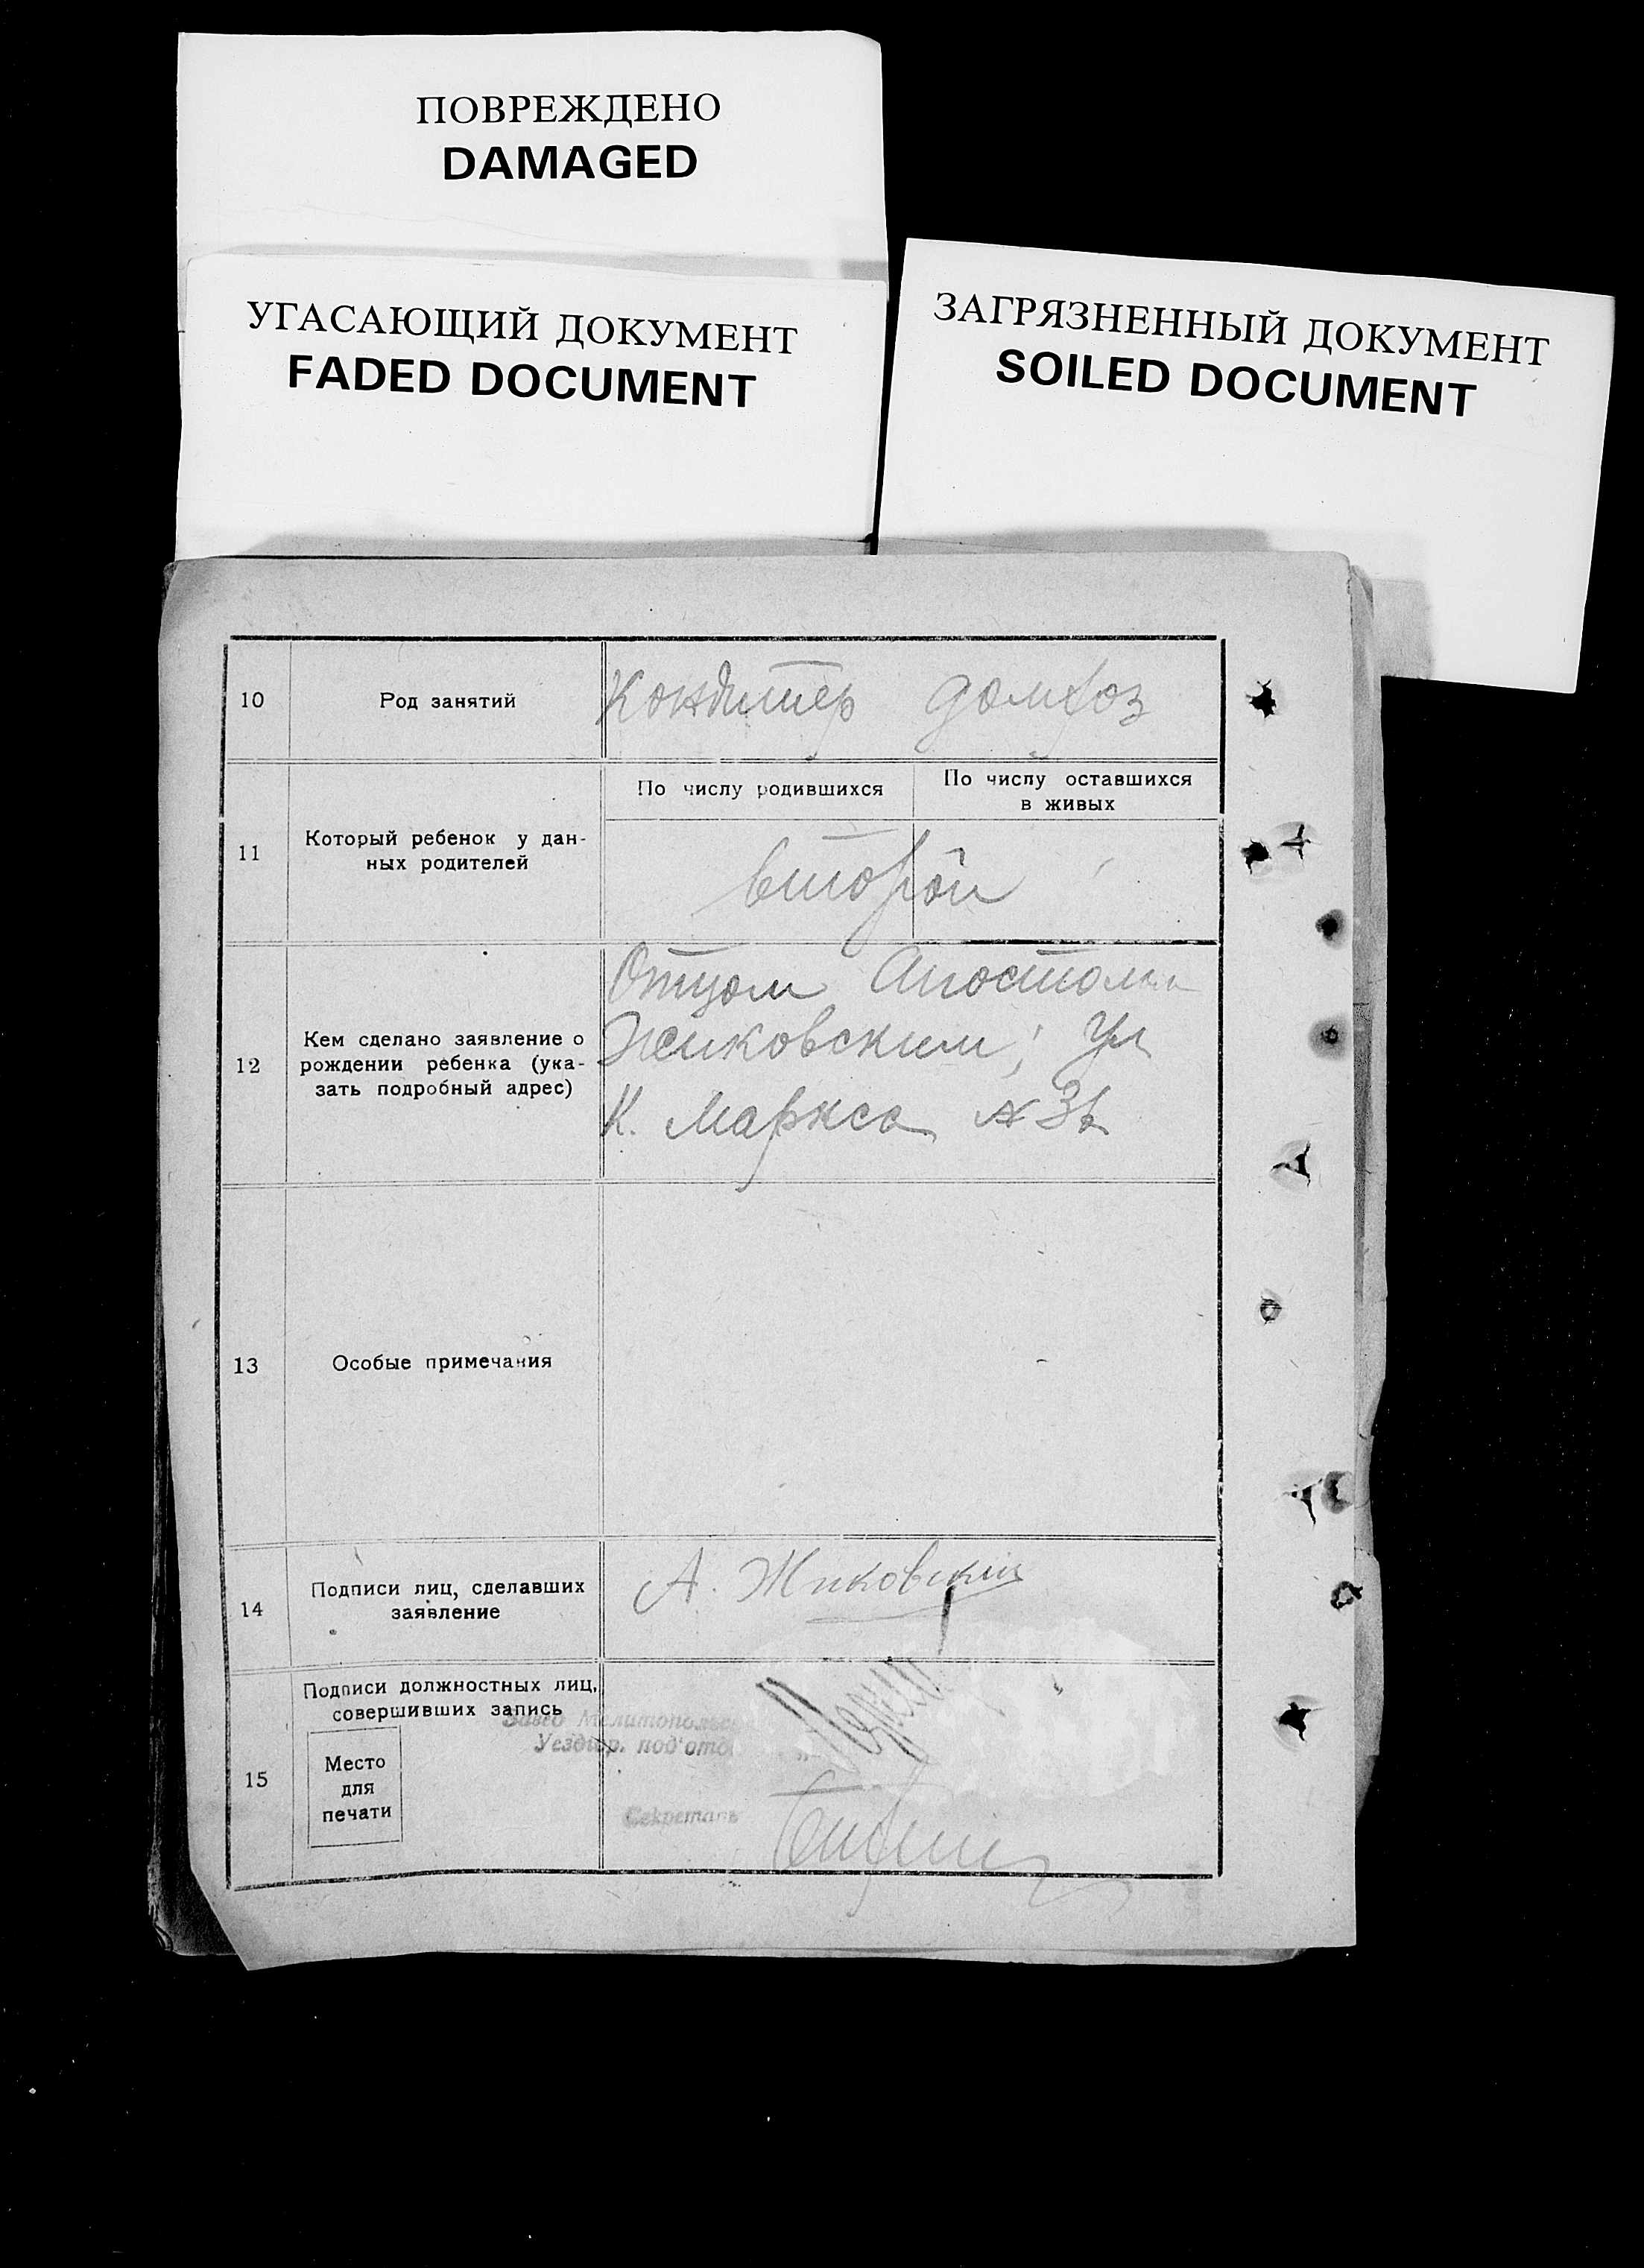 ПОВРЕЖДЕНО
DAMAGED
УГАСАЮЩИЙ ДОКУМЕНТ
FADED DOCUMENT
ЗАГРЯЗНЕННЫЙ ДОКУМЕНТ
SOILED DOCUMENT
10
Род занятий
Кондитер домхоз
11
Который ребенок у дан-
ных родителей
По числу родившихся
По числу оставшихся
в живых
второй
12
Кем сделано заявление о
рождении ребенка (ука-
зать подробный адрес)
Отцом Апостолом
Жиковским; Ул
К. Маркса №
13
Особые примечания
14
Подписи лиц, сделавших
заявление
А. Жиковский
15
Подписи должностных лиц,
совершивших запись
Место
для
печати
Завед Мелитопольс
под'отд
Секретарь